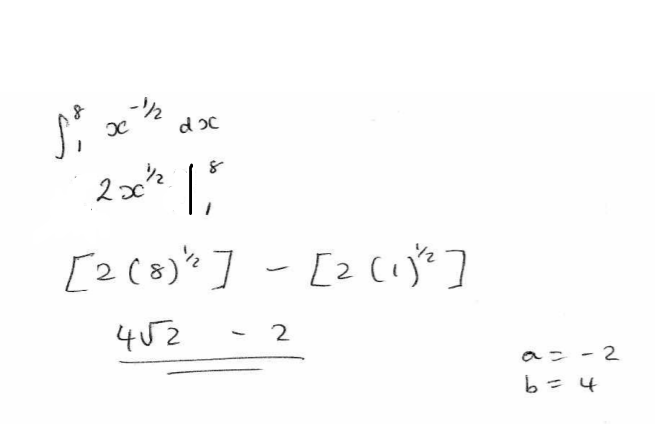 ∫₁⁸ x^(-1/2) dx
2x^(1/2) |₁⁸
[2(8)^(1/2)] - [2(1)^(1/2)]
4√2 - 2
a = -2
b = 4